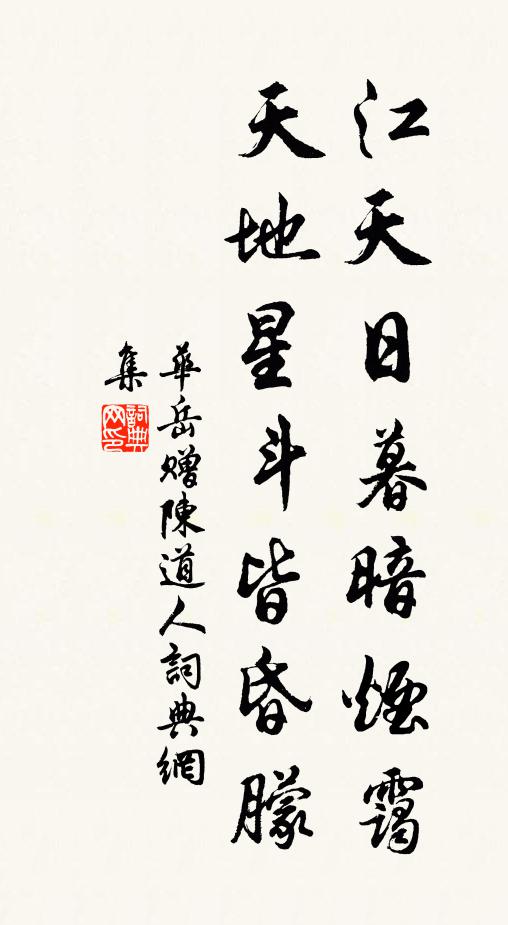 江天日暮暗煙靄
天地星斗皆昏朦
華岳贈陳道人詞典網
集
詞典
网印